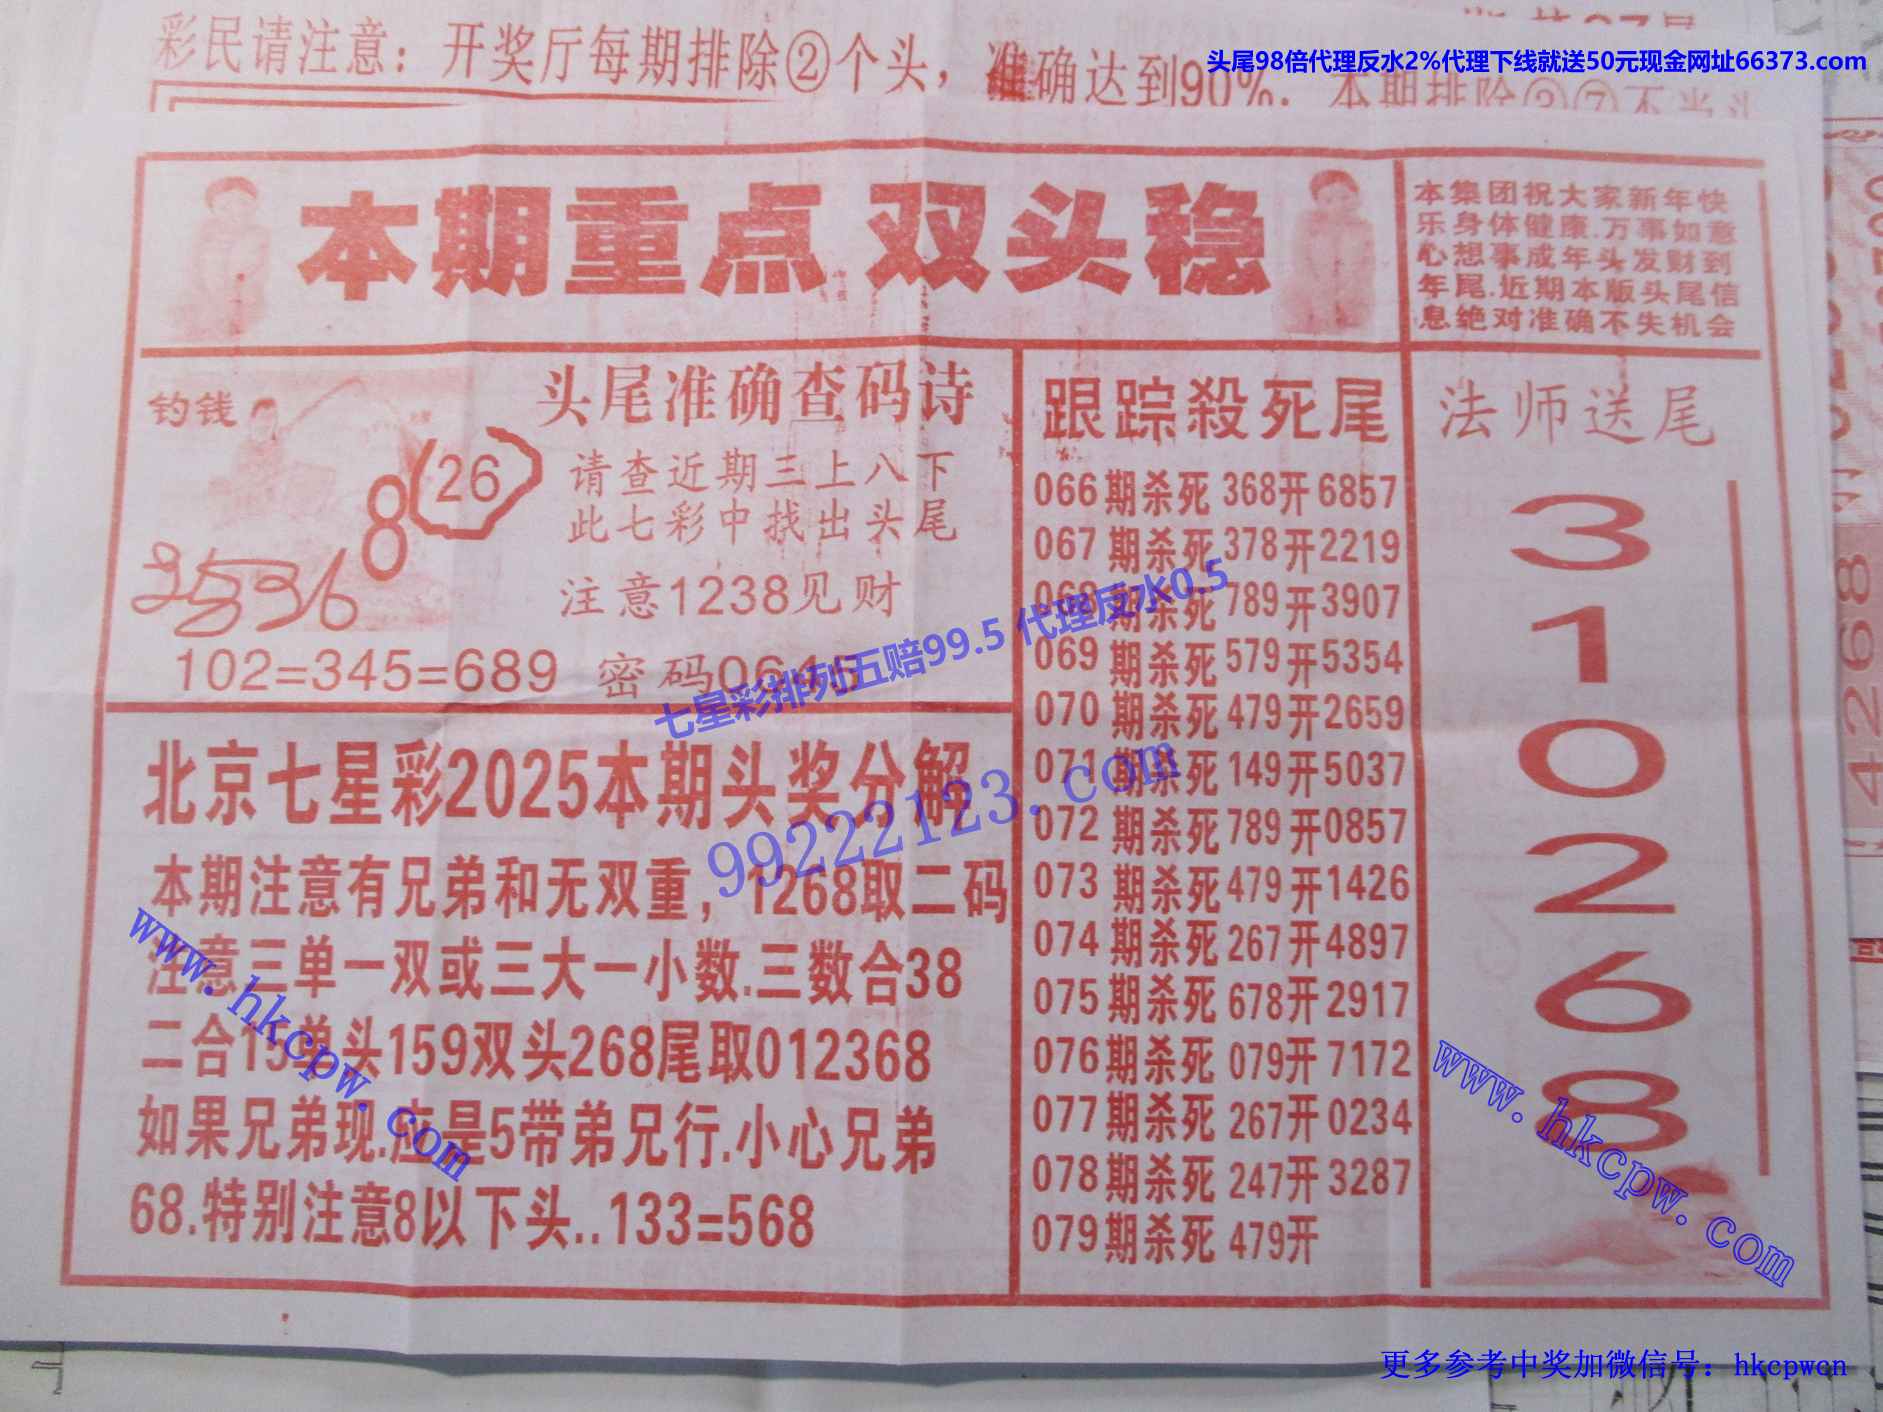 彩民请注意：开奖厅每期排除②个头，准确达到90%.
头尾98倍代理反水2%代理下线就送50元现金网址66373.com
本期重点 双头稳
本集团祝大家新年快
乐身体健康.万事如意
心想事成年头发财到
年尾.近期本版头尾信
息绝对准确不失机会
钓钱
8
26
头尾准确查码诗
请查近期三上八下
此七彩中找出头尾
注意1238见财
102=345=689 密码0645
七星彩排列五赔99.5 代理反水0.5
北京七星彩2025本期头奖分解
99222123.com
本期注意有兄弟和无双重，1268取二码
注意三单一双或三大一小数.三数合38
二合15单头159双头268尾取012368
如果兄弟现.座是5带弟兄行.小心兄弟
68.特别注意8以下头..133=568
www.hkcpw.com
跟踪殺死尾
066期杀死368开6857
067期杀死378开2219
068期杀死789开3907
069期杀死579开5354
070期杀死479开2659
071期杀死149开5037
072期杀死789开0857
073期杀死479开1426
074期杀死267开4897
075期杀死678开2917
076期杀死079开7172
077期杀死267开0234
078期杀死247开3287
079期杀死479开
法师送尾
3
1
0
2
6
8
www.hkcpw.com
4268
更多参考中奖加微信号：hkcpwcn